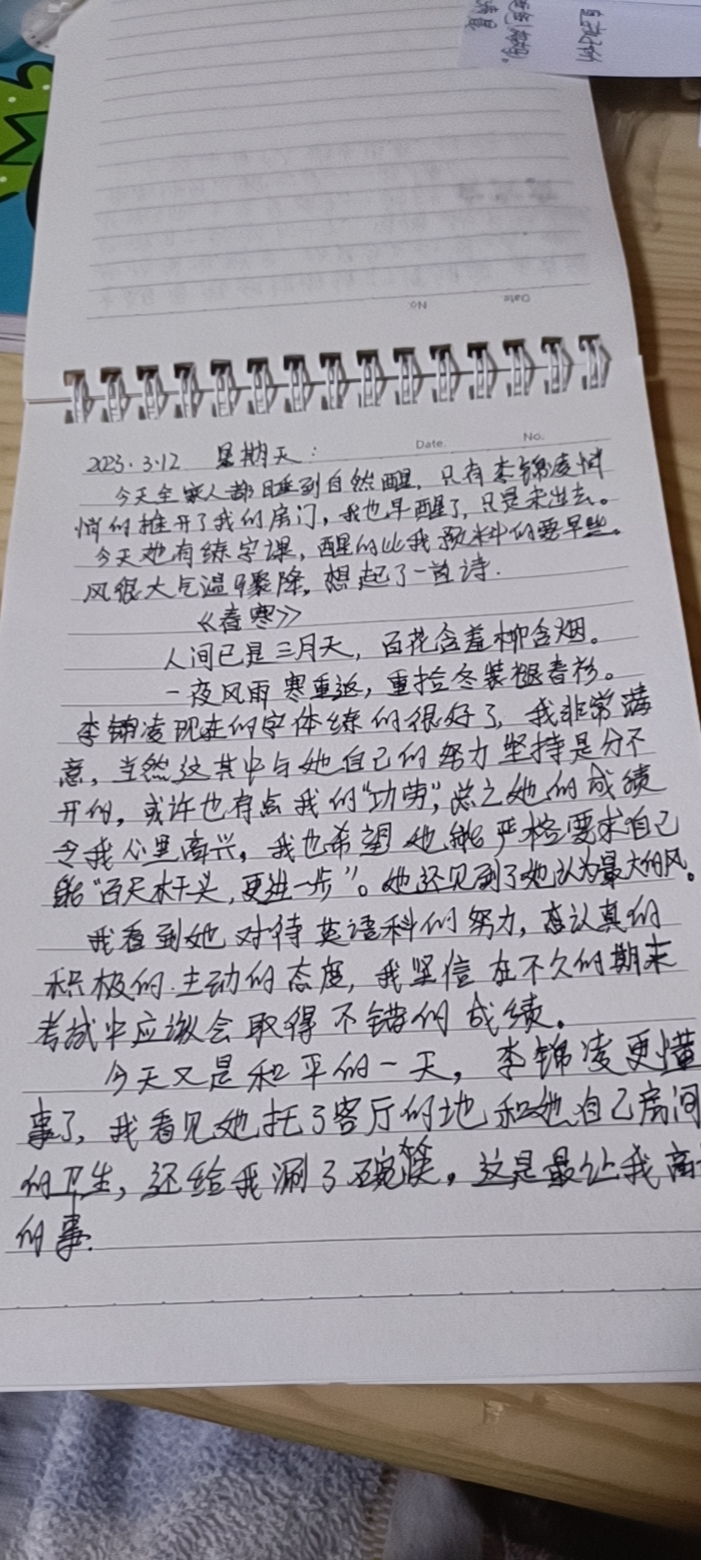 自动
Date
No
Date.
No.
2023.3.12 星期天:
今天全家人都睡到自然醒,只有李锦凌悄
悄的推开了我的房门,我也早醒了,只是未出去。
今天她有练字课,醒的比我预料中的要早些。
风很大气温骤降,想起了一首诗.
《春寒》
人间已是三月天,百花含羞柳含烟。
一夜风雨寒重返,重捡冬装褪春衫。
李锦凌现在的字体练的很好了,我非常满
意,当然这其中与她自己的努力坚持是分不
开的,或许也有点我的“功劳”,总之她的成绩
令我心里高兴,我也希望她能严格要求自己
能“百尺杆头,更进一步”。她还见到了她认为最大的风。
我看到她对待英语科的努力,态认真的
积极的.主动的态度,我坚信在不久的期末
考试中应该会取得不错的成绩。
今天又是和平的一天,李锦凌更懂
事了,我看见她托了客厅的地和她自己房间
的卫生,还给我涮了碗筷,这是最让我高
的事.